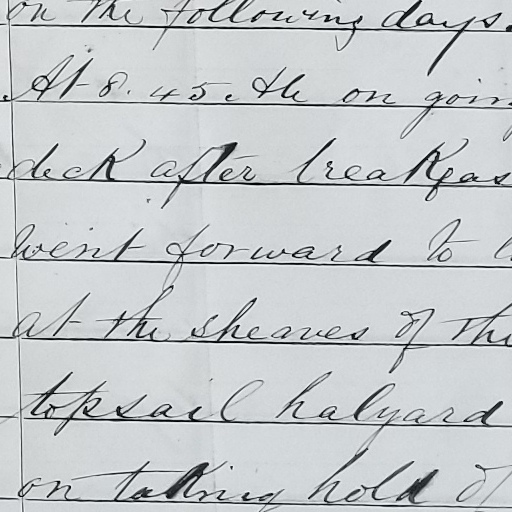 on the following days.
At 8.45. on goin
deck after breakfas
went forward to l
at the sheaves of the
topsail halyard
on taking hold of